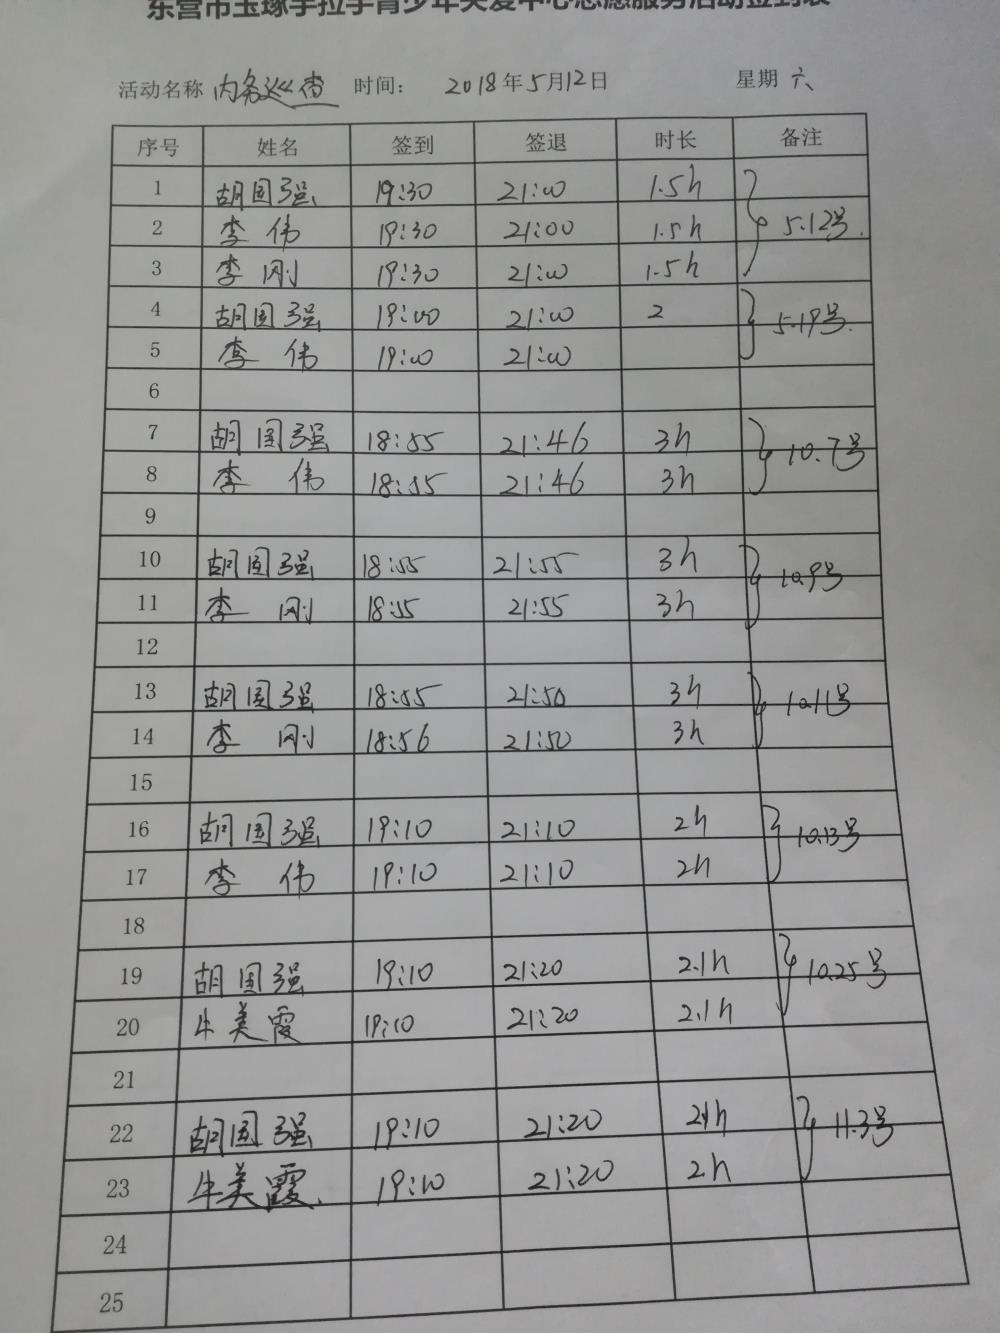 东营市玉琢手拉手青少年关爱中心志愿服务活动签到表
活动名称 内务巡查 时间: 2018年5月12日 星期 六
序号 姓名 签到 签退 时长 备注
1 胡国强 19:30 21:00 1.5h
2 李伟 19:30 21:00 1.5h 5.12号.
3 李刚 19:30 21:00 1.5h
4 胡国强 19:00 21:00 2 5.19号.
5 李伟 19:00 21:00
6
7 胡国强 18:55 21:46 3h 10.7号
8 李伟 18:55 21:46 3h
9
10 胡国强 18:55 21:55 3h 10.9号
11 李刚 18:55 21:55 3h
12
13 胡国强 18:55 21:50 3h 10.11号
14 李刚 18:56 21:50 3h
15
16 胡国强 19:10 21:10 2h 10.13号
17 李伟 19:10 21:10 2h
18
19 胡国强 19:10 21:20 2.1h 10.25号
20 牛美霞 19:10 21:20 2.1h
21
22 胡国强 19:10 21:20 2.1h 11.3号
23 牛美霞. 19:10 21:20 2h
24
25